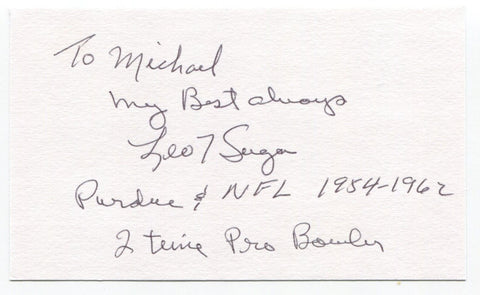 To Michael
My Best always
Leo T Sugar
Purdue & NFL 1954-1962
2 time Pro Bowler